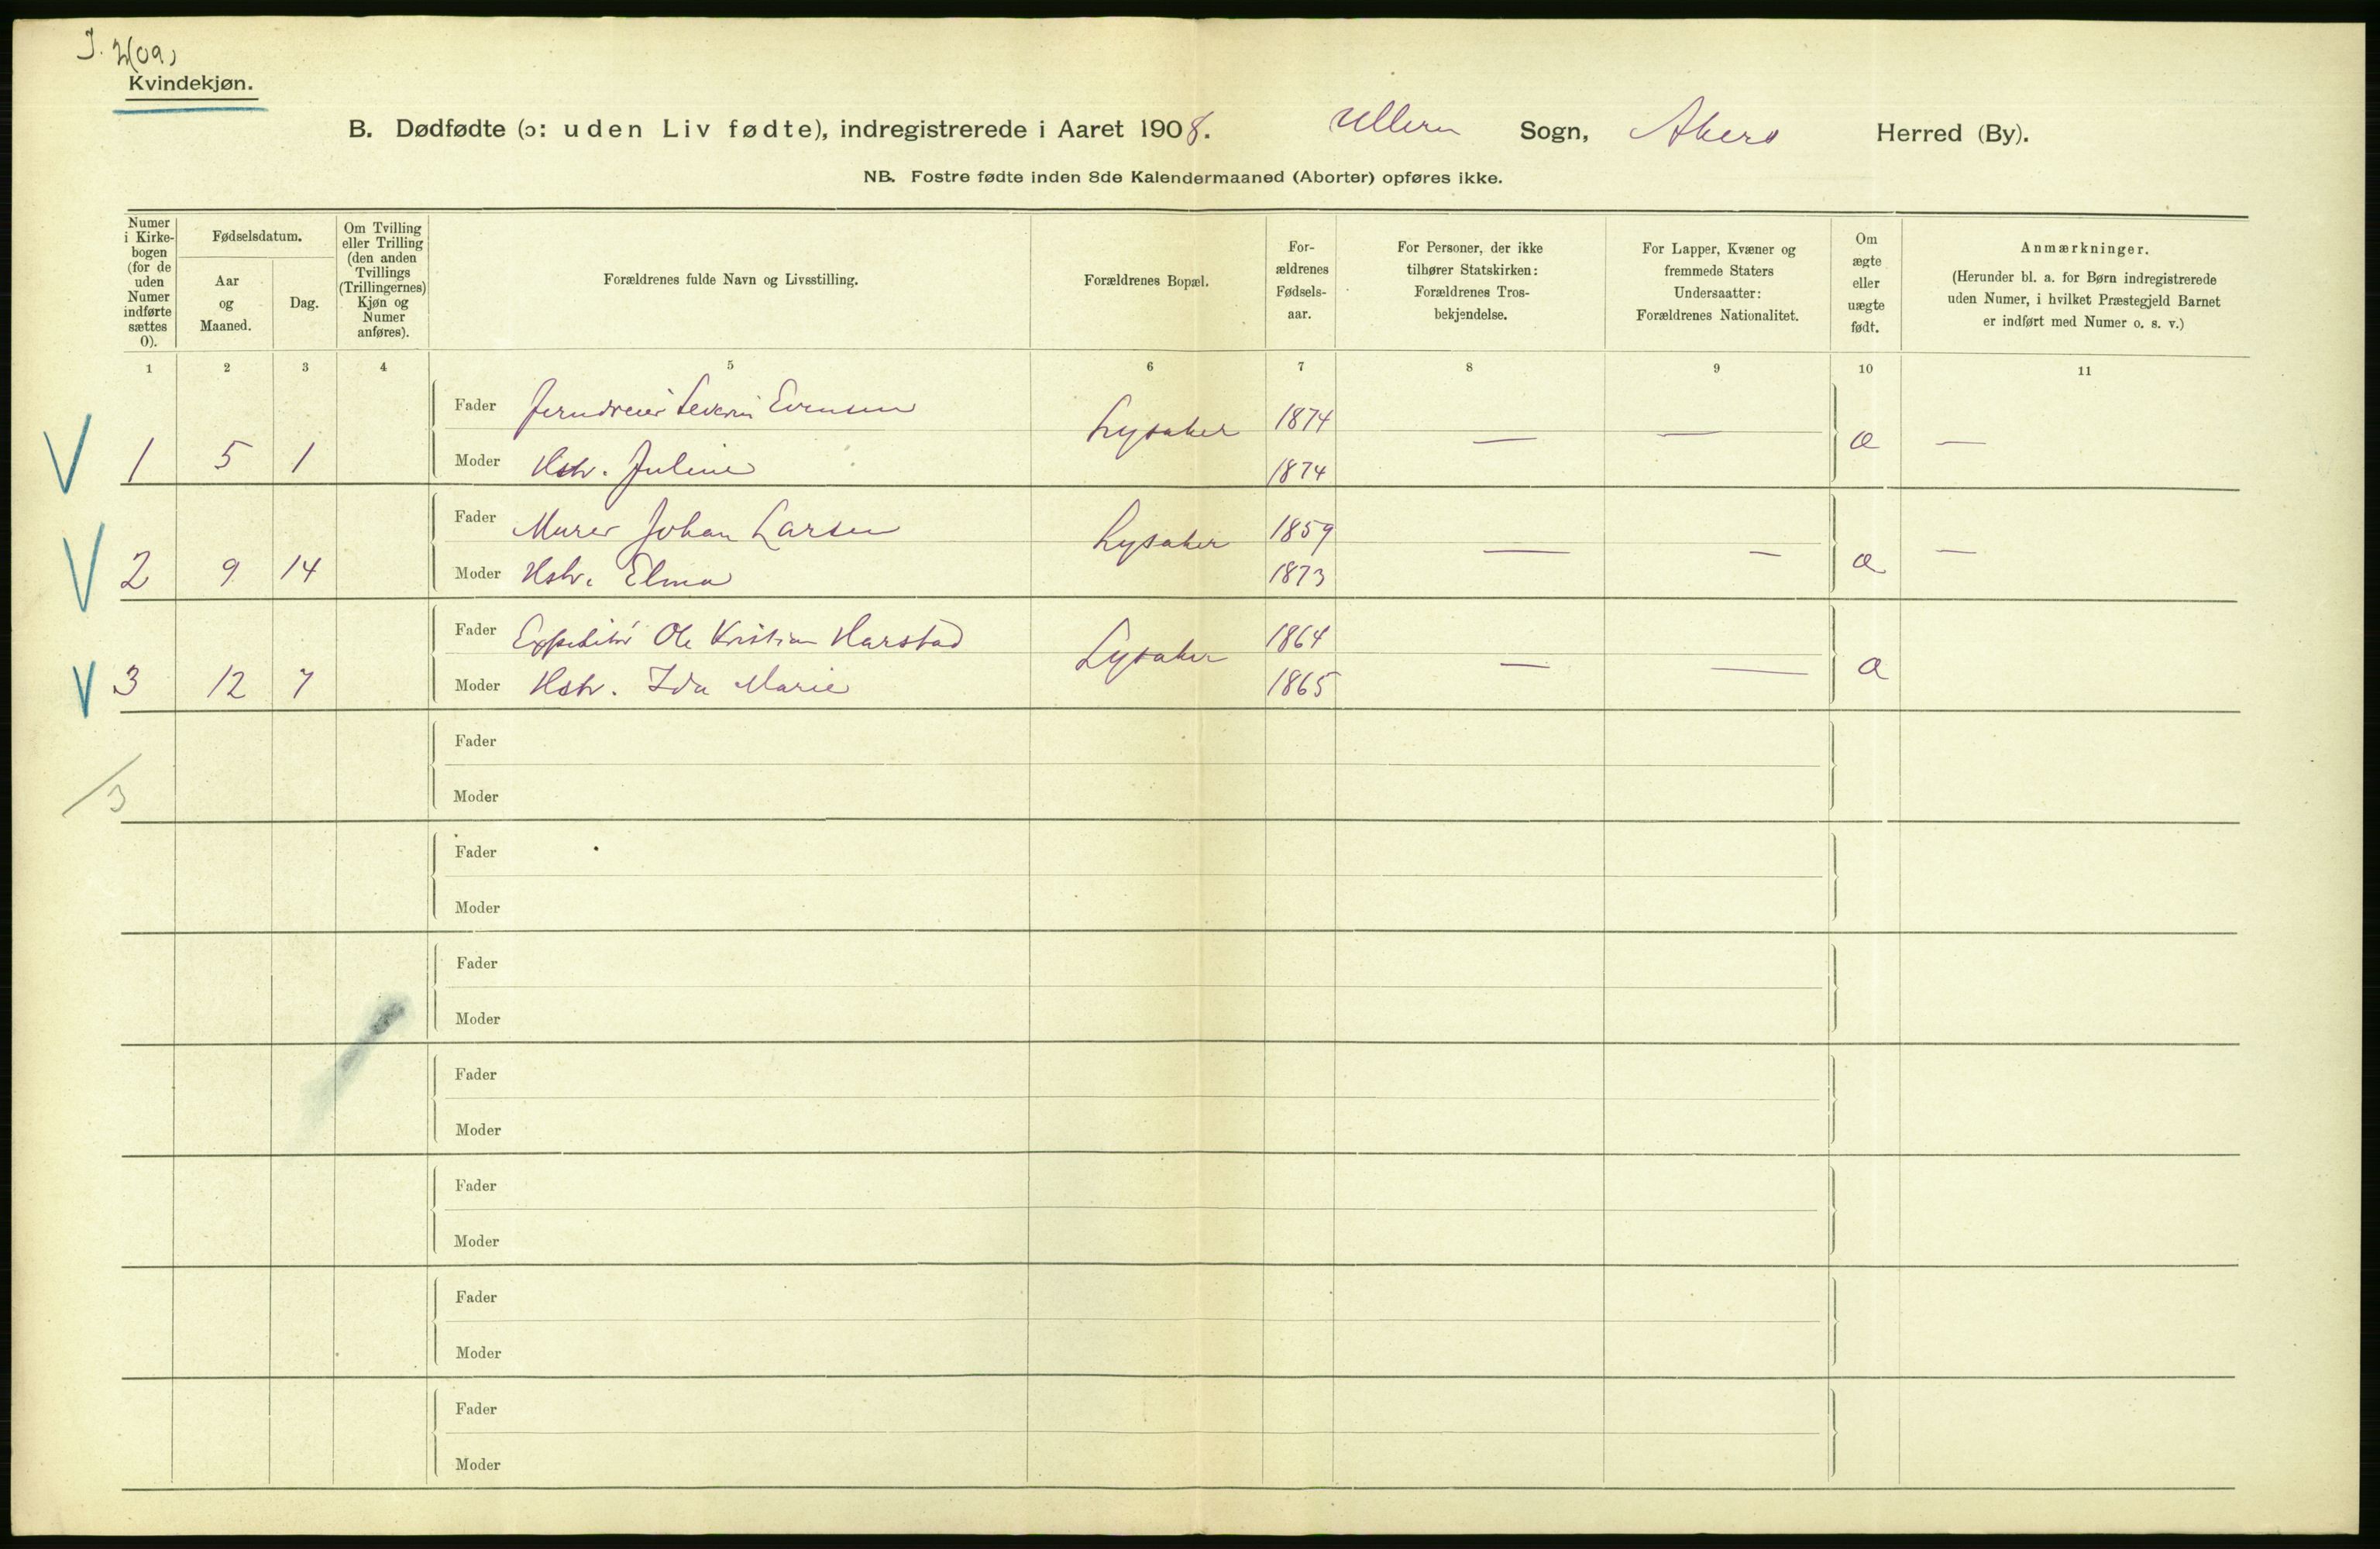 J. 2(09)
Kvindekjøn.
B. Dødfødte (ɔ: uden Liv fødte), indregistrerede i Aaret 1908. Ullern Sogn, Akers Herred (By).
NB. Fostre fødte inden 8de Kalendermaaned (Aborter) opføres ikke.
Numer
i Kirke-
bogen
(for de
uden
Numer
indførte
sættes
0).
Fødselsdatum.
Aar
og
Maaned.
Dag.
Om Tvilling
eller Trilling
(den anden
Tvillings
(Trillingernes)
Kjøn og
Numer
anføres).
Forældrenes fulde Navn og Livsstilling.
Forældrenes Bopæl.
For-
ældrenes
Fødsels-
aar.
For Personer, der ikke
tilhører Statskirken:
Forældrenes Tros-
bekjendelse.
For Lapper, Kvæner og
fremmede Staters
Undersaatter:
Forældrenes Nationalitet.
Om
ægte
eller
uægte
født.
Anmærkninger.
(Herunder bl. a. for Børn indregistrerede
uden Numer, i hvilket Præstegjeld Barnet
er indført med Numer o. s. v.)
1 2 3 4 5 6 7 8 9 10 11
Fader Jerndreier Severin Evensen Lysaker 1874
V 1 5 1 Moder Hstr. Juline 1874 — — æ —
Fader Murer Johan Larsen Lysaker 1859
V 2 9 14 Moder Hstr. Elma 1873 — — æ —
Fader Expeditør Ole Kristian Harstad Lysaker 1864
V 3 12 7 Moder Hstr. Ida Marie 1865 — — æ
Fader
/3 Moder
Fader
Moder
Fader
Moder
Fader
Moder
Fader
Moder
Fader
Moder
Fader
Moder